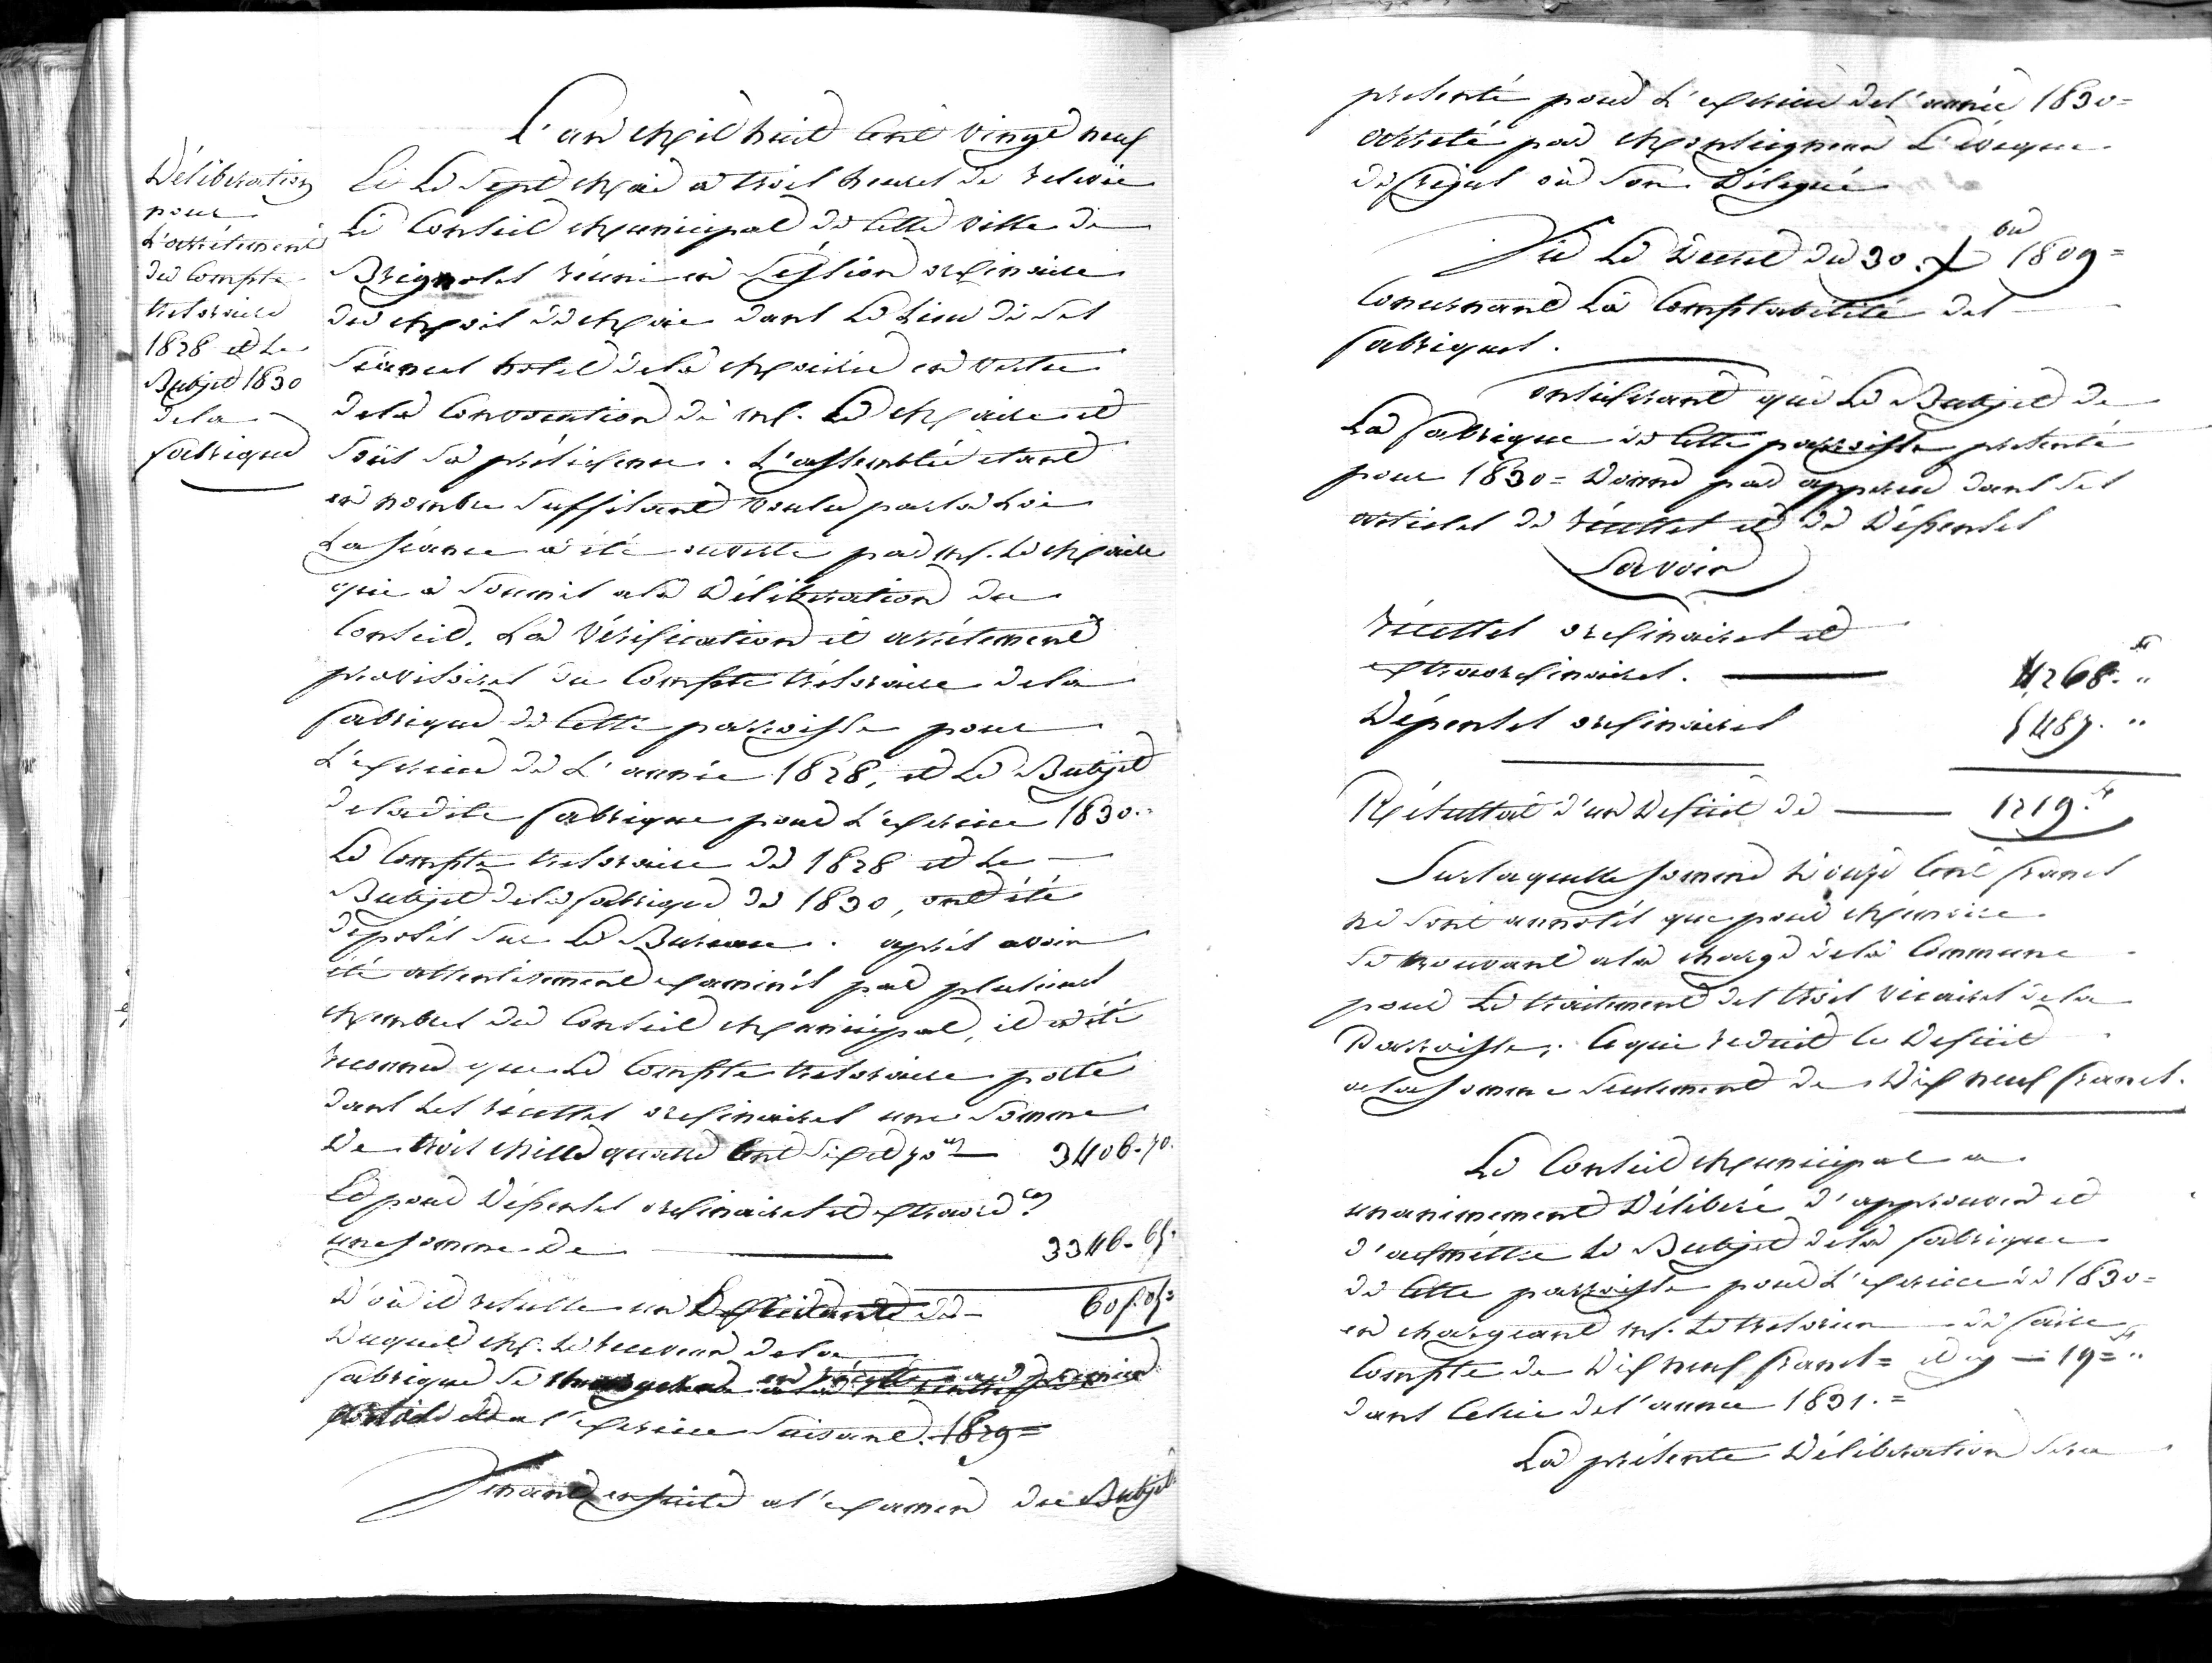 Délibération
pour
L'arrêtement
du Compte
tresoraire
1828 et Le
Budjet 1830
dela
fabrique
L'an Mil huit Cent vingt neuf
Et Le Sept Mai a trois heures de relevée
Le Conseil Municipal de Cette ville de
Brignoles réuni en Session ordinaire
du Mois de Mai dans Le Lieu de Ses
Séances hotel dela Mairie en vertu
dela Convocation de Mr. Le Maire et
Sous Sa présidence. L'assemblée etant
en nombre Suffisant voulu par la Loi
La séance a été ouverte par Mr. Le Maire
qui a Soumis ala Délibération du
Conseil, La Vérification et arrêtement
provisoires du Compte trésoraire dela
fabrique de Cette parroisse pour
L'exercice de L'année 1828, et Le Budjet
deladite fabrique pour L'exercice 1830.=
Le Compte tresoraire de 1828 et Le
Budjet dela fabrique de 1830, ont été
déposés Sur Le Bureau. après avoir
été attentivement examinés par plusieurs
Membres du Conseil Municipal, il a été
reconnu que Le Compte tresoraire porte
dans Les récettes ordinaires une Somme
De trois Mille quatre Cent Six et 70 cs 3406-70.
Et pour Dépenses ordinaires et extraord.res
une somme de 3346-65.
D'où il resulte un Exeédante de 60f.05=
Duquel Mr. Le receveur dela
fabrique Se Chargera en récette au premier
article de l'exercice Suivant. 1829=
Venant ensuite a l'examen du Budjet
presenté pour L'exercice del'année 1830=
arrêté par Monseigneur L'évêque
de frejus où Son Délegué
Vu Le Decret du 30. Xbre 1809=
Concernant La Comptabilité des
fabriques.
Considerant que Le Budjet de
La fabrique de Cette parroisse presenté
pour 1830= Donne par apperçu dans Ses
articles de récettes et de Dépenses
Savoir
Récettes ordinaires et
extraordinaires. 4268.f "
Dépenses ordinaires 5487. "
Résultat d'un Deficit de 1219.f
Sur laquelle somme Douze Cent francs
ne Sont annotés que pour Memoire
Se trouvant ala charge dela Commune
pour Le traitement des trois vicaires dela
Parroisse; Ce qui reduit le Deficit
ala somme Seulement de Dix neuf francs.
Le Conseil Municipal a
unanimement Délibéré d'approuver et
d'admettre Le Budjet dela fabrique
de Cette parroisse pour L'exercice de 1830=
en chargeant Mr. Le tresorier de faire
Compte de Dix neuf francs= 19=f "
dans Celui del'année 1831.=
La présente Délibération Sera